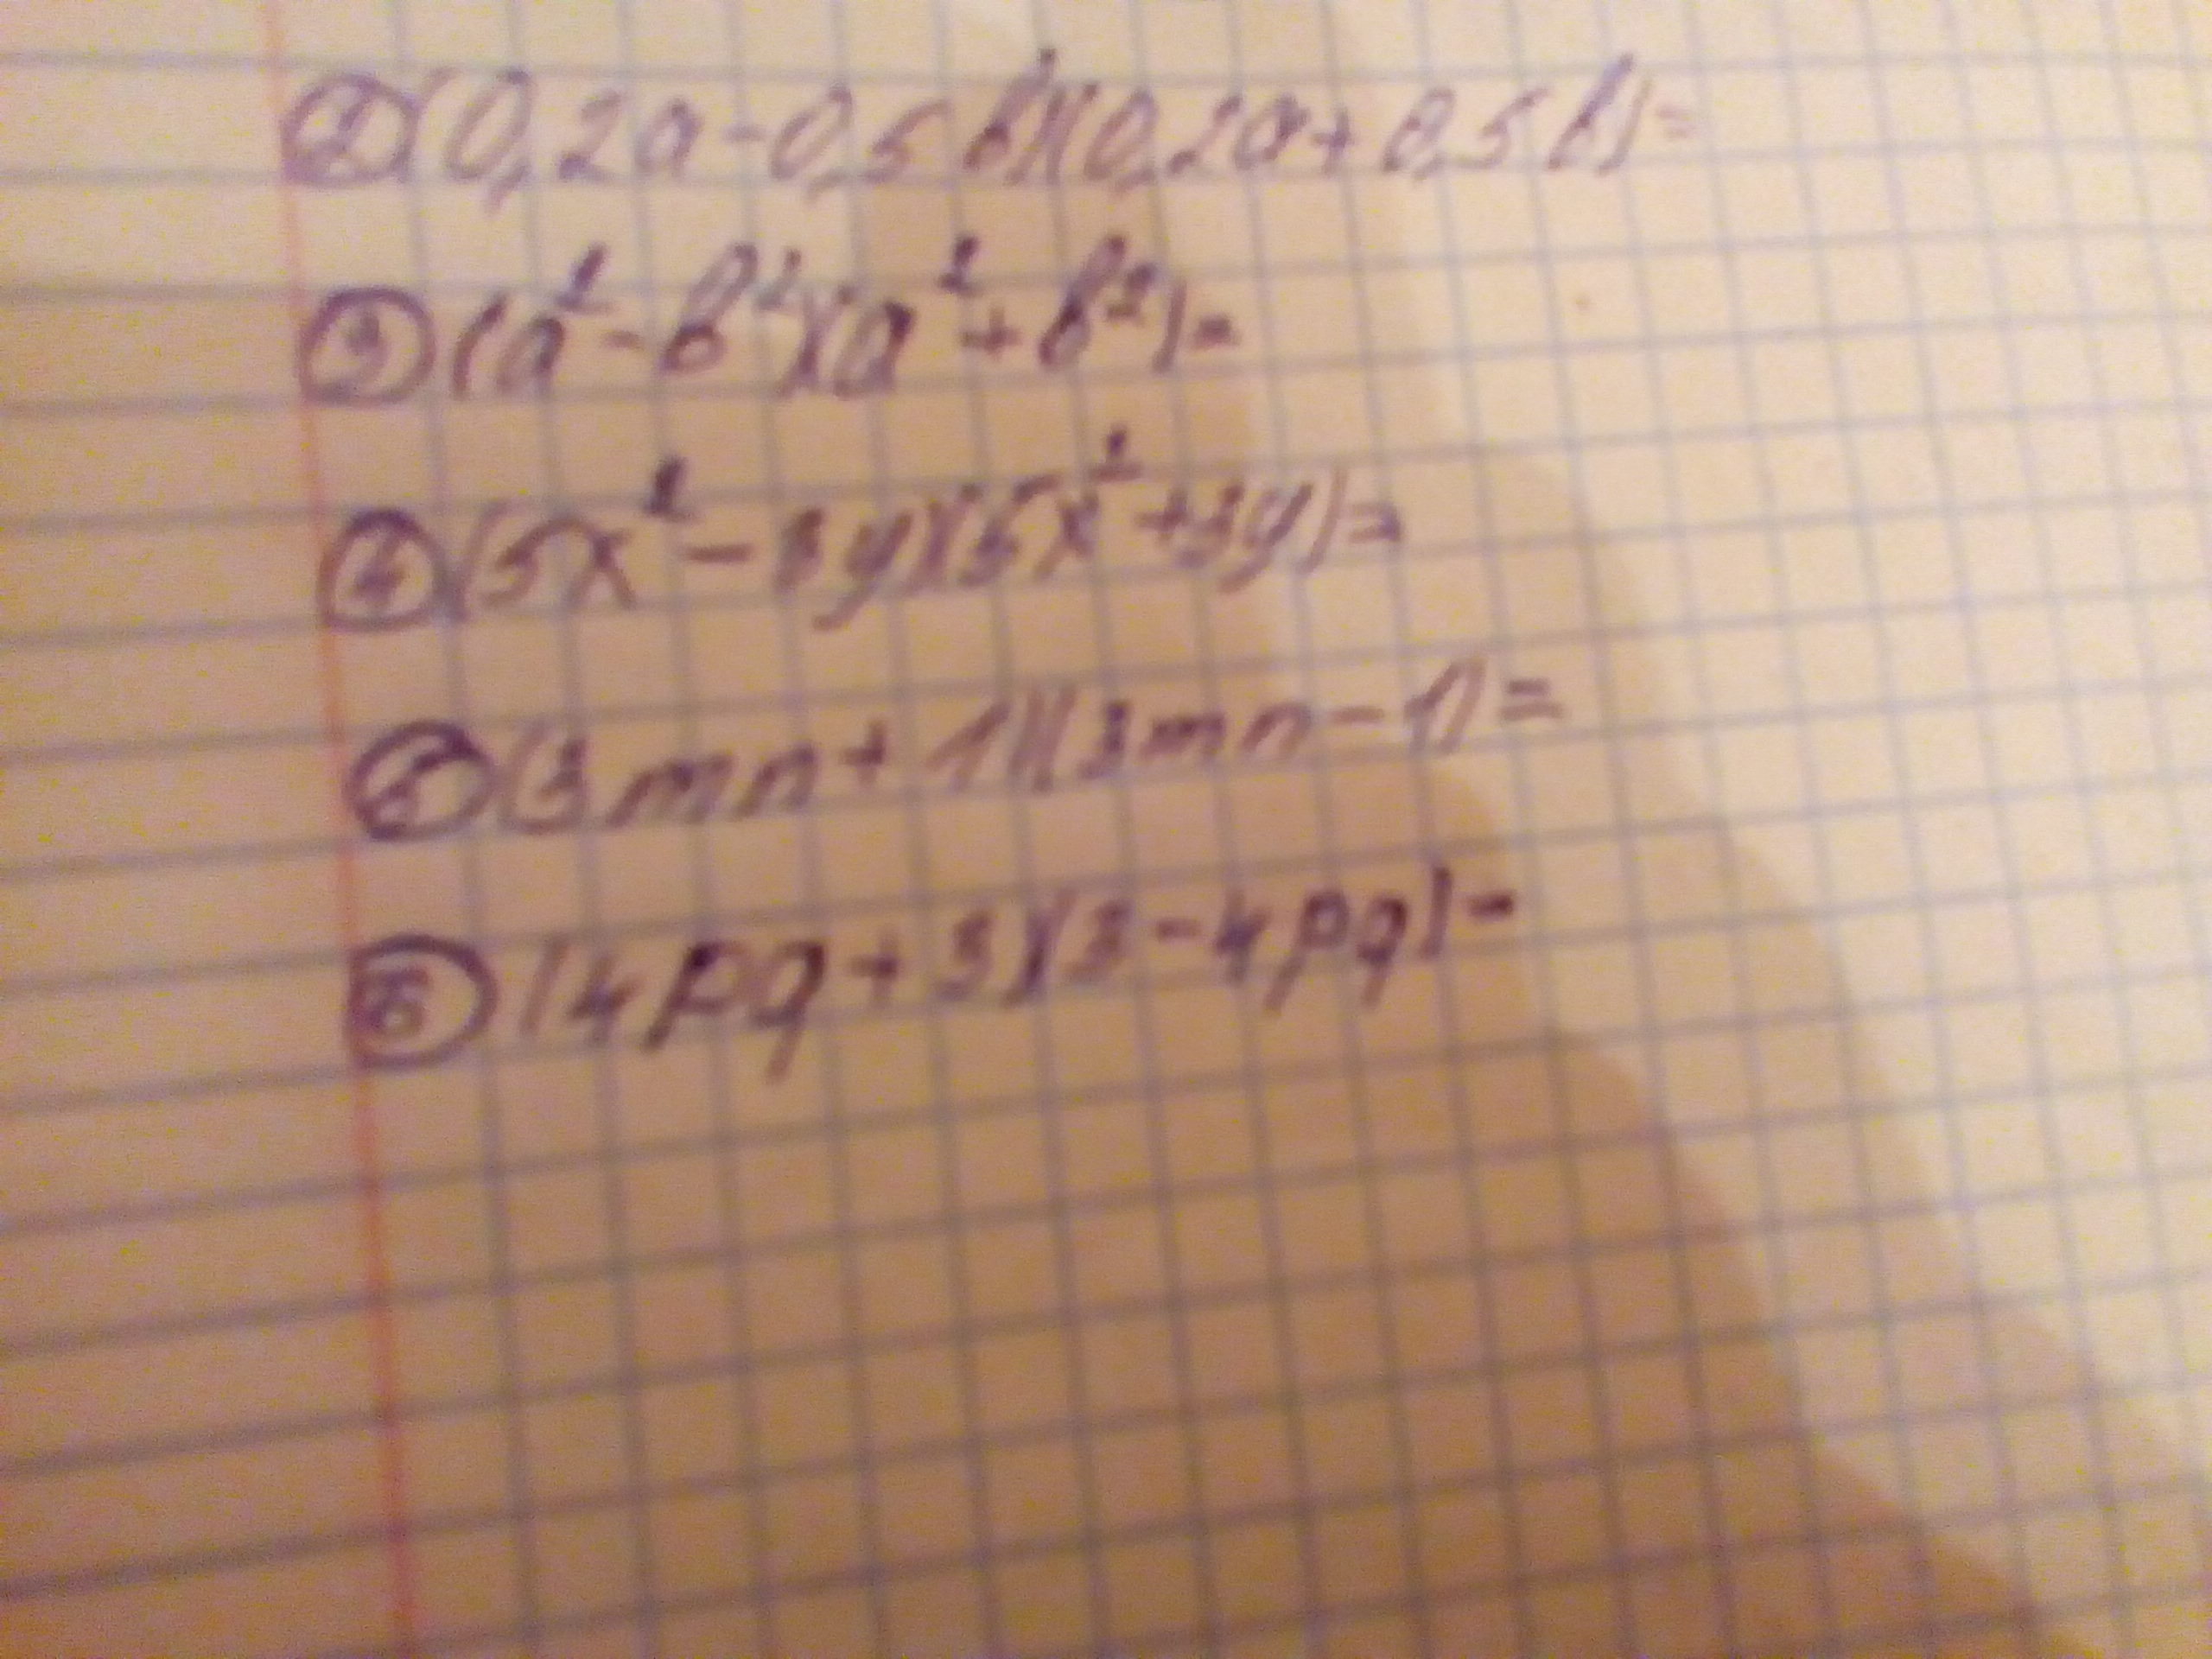 ② (0,2a-0,5b)(0,2a+0,5b)=
③ (a²-b²)(a²+b²)=
④ (5x²-3y)(5x²+3y)=
⑤ (3mn+1)(3mn-1)=
⑥ (4pq+3)(3-4pq)=